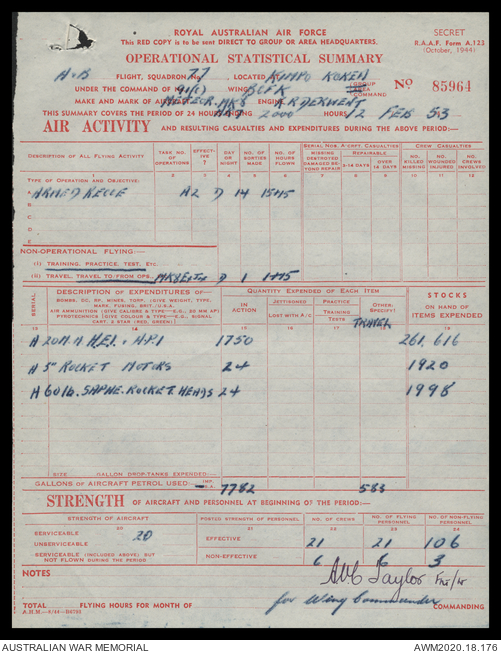 ROYAL AUSTRALIAN AIR FORCE
This RED COPY is to be sent DIRECT TO GROUP OR AREA HEADQUARTERS.
SECRET
R.A.A.F. Form A.123
(October, 1944)
OPERATIONAL STATISTICAL SUMMARY
A+B FLIGHT, SQUADRON No. 77, LOCATED KIMPO KOREA
UNDER THE COMMAND OF 91(C) WING, BCFK GROUP AREA COMMAND
No 85964
MAKE AND MARK OF AIRCRAFT METEOR MK8 ENGINE R.R DERWENT
THIS SUMMARY COVERS THE PERIOD OF 24 HOURS ENDING 2000 HOURS 12 FEB 53
AIR ACTIVITY AND RESULTING CASUALTIES AND EXPENDITURES DURING THE ABOVE PERIOD:—
DESCRIPTION OF ALL FLYING ACTIVITY
TASK NO. OF OPERATIONS
EFFECTIVE T
DAY OR NIGHT
NO. OF SORTIES MADE
NO. OF HOURS FLOWN
SERIAL NOS. A-CRPT CASUALTIES
MISSING DESTROYED DAMAGED BEYOND REPAIR
REPAIRABLE
2-14 DAYS
OVER 14 DAYS
CREW CASUALTIES
NO. KILLED MISSING
NO. WOUNDED INJURED
NO. CREWS INVOLVED
1 2 3 4 5 6 7 8 9 10 11 12
TYPE OF OPERATION AND OBJECTIVE:
ARMED RECCE A2 D 14 15+15
B
C
D
E
NON-OPERATIONAL FLYING:—
(i) TRAINING, PRACTICE, TEST, ETC.
(ii) TRAVEL, TRAVEL TO/FROM OPS. D 1 1+15
SERIAL
DESCRIPTION OF EXPENDITURES OF—
BOMBS, DC, RP, MINES, TORP. (GIVE WEIGHT, TYPE, MARK, FUSING, BRIT./U.S.A.
AIR AMMUNITION (GIVE CALIBRE & TYPE—E.G., 20 MM AP)
PYROTECHNICS (GIVE COLOUR & TYPE—E.G., SIGNAL CART. 2 STAR (RED, GREEN.)
QUANTITY EXPENDED OF EACH ITEM
IN ACTION
JETTISONED
LOST WITH A/C
PRACTICE
TRAINING
TESTS
OTHER. (SPECIFY)
TRAVEL
STOCKS
ON HAND OF ITEMS EXPENDED
13 14 15 16 17 18
A 20MM HEI. + API 1750 261,616
A 3" ROCKET MOTORS 24 1920
A 60lb. SAPHE. ROCKET HEADS 24 1998
SIZE GALLON DROP-TANKS EXPENDED—
GALLONS OF AIRCRAFT PETROL USED:— IMP. 7782 583
STRENGTH OF AIRCRAFT AND PERSONNEL AT BEGINNING OF THE PERIOD:—
STRENGTH OF AIRCRAFT
POSTED STRENGTH OF PERSONNEL
NO. OF CREWS
NO. OF FLYING PERSONNEL
NO. OF NON-FLYING PERSONNEL
20 22 23 24
SERVICEABLE 20
UNSERVICEABLE
EFFECTIVE 21 21 106
SERVICEABLE (INCLUDED ABOVE) BUT NOT FLOWN DURING THE PERIOD
NON-EFFECTIVE 6 6 3
NOTES
Taylor
for Wing Commander COMMANDING
TOTAL FLYING HOURS FOR MONTH OF
AUSTRALIAN WAR MEMORIAL
AWM2020.18.176